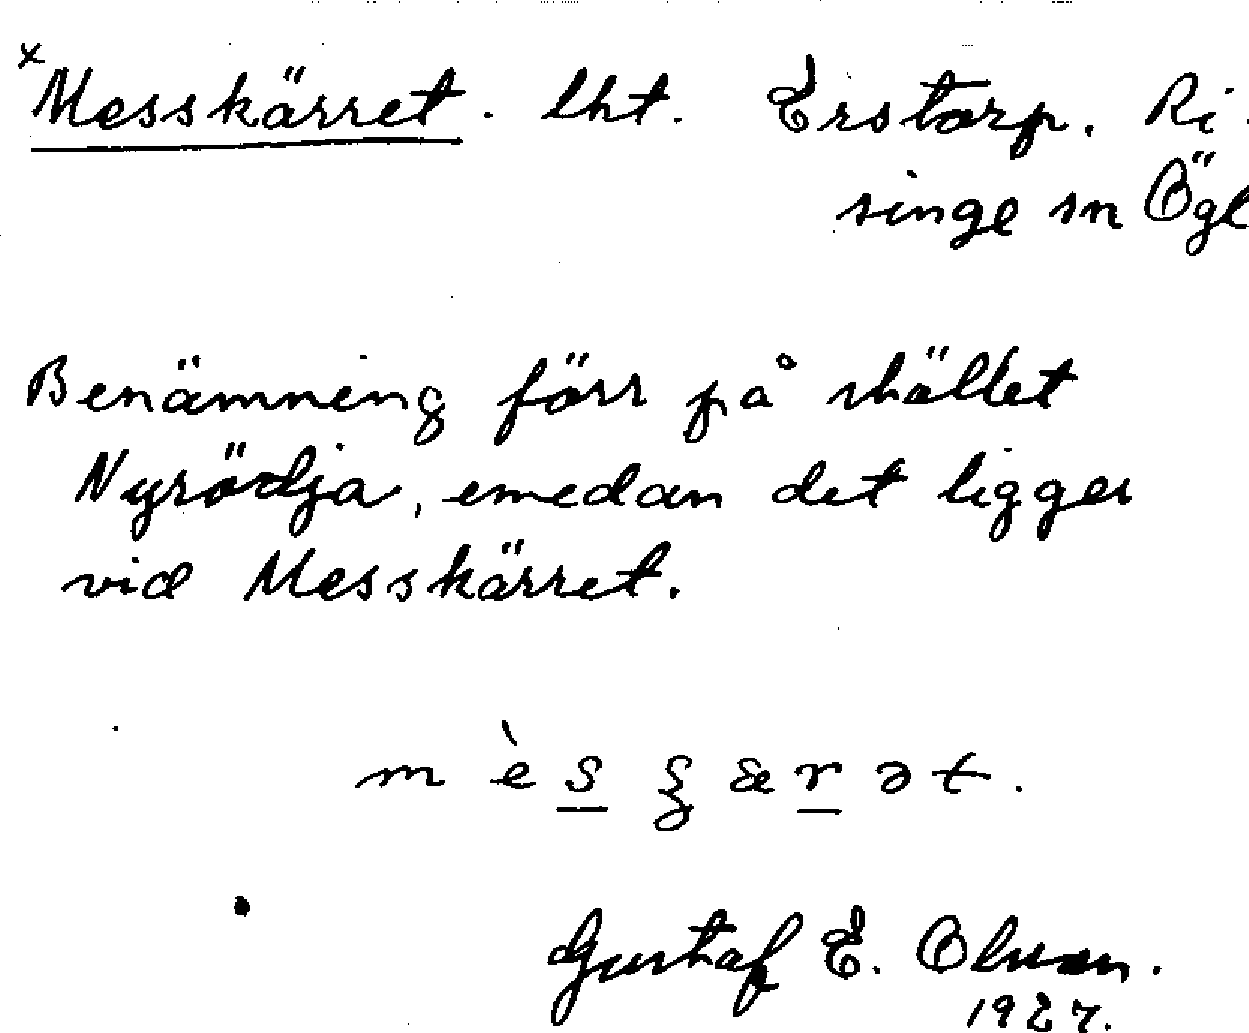 × Messkärret. lht. Erstorp. Ri-
singe sn Ögl
Benämning förr på stället
Nyrödja, emedan det ligger
vid Messkärret.
m è s ʂ æ r ə t.
Gustaf E. Olsson.
1927.